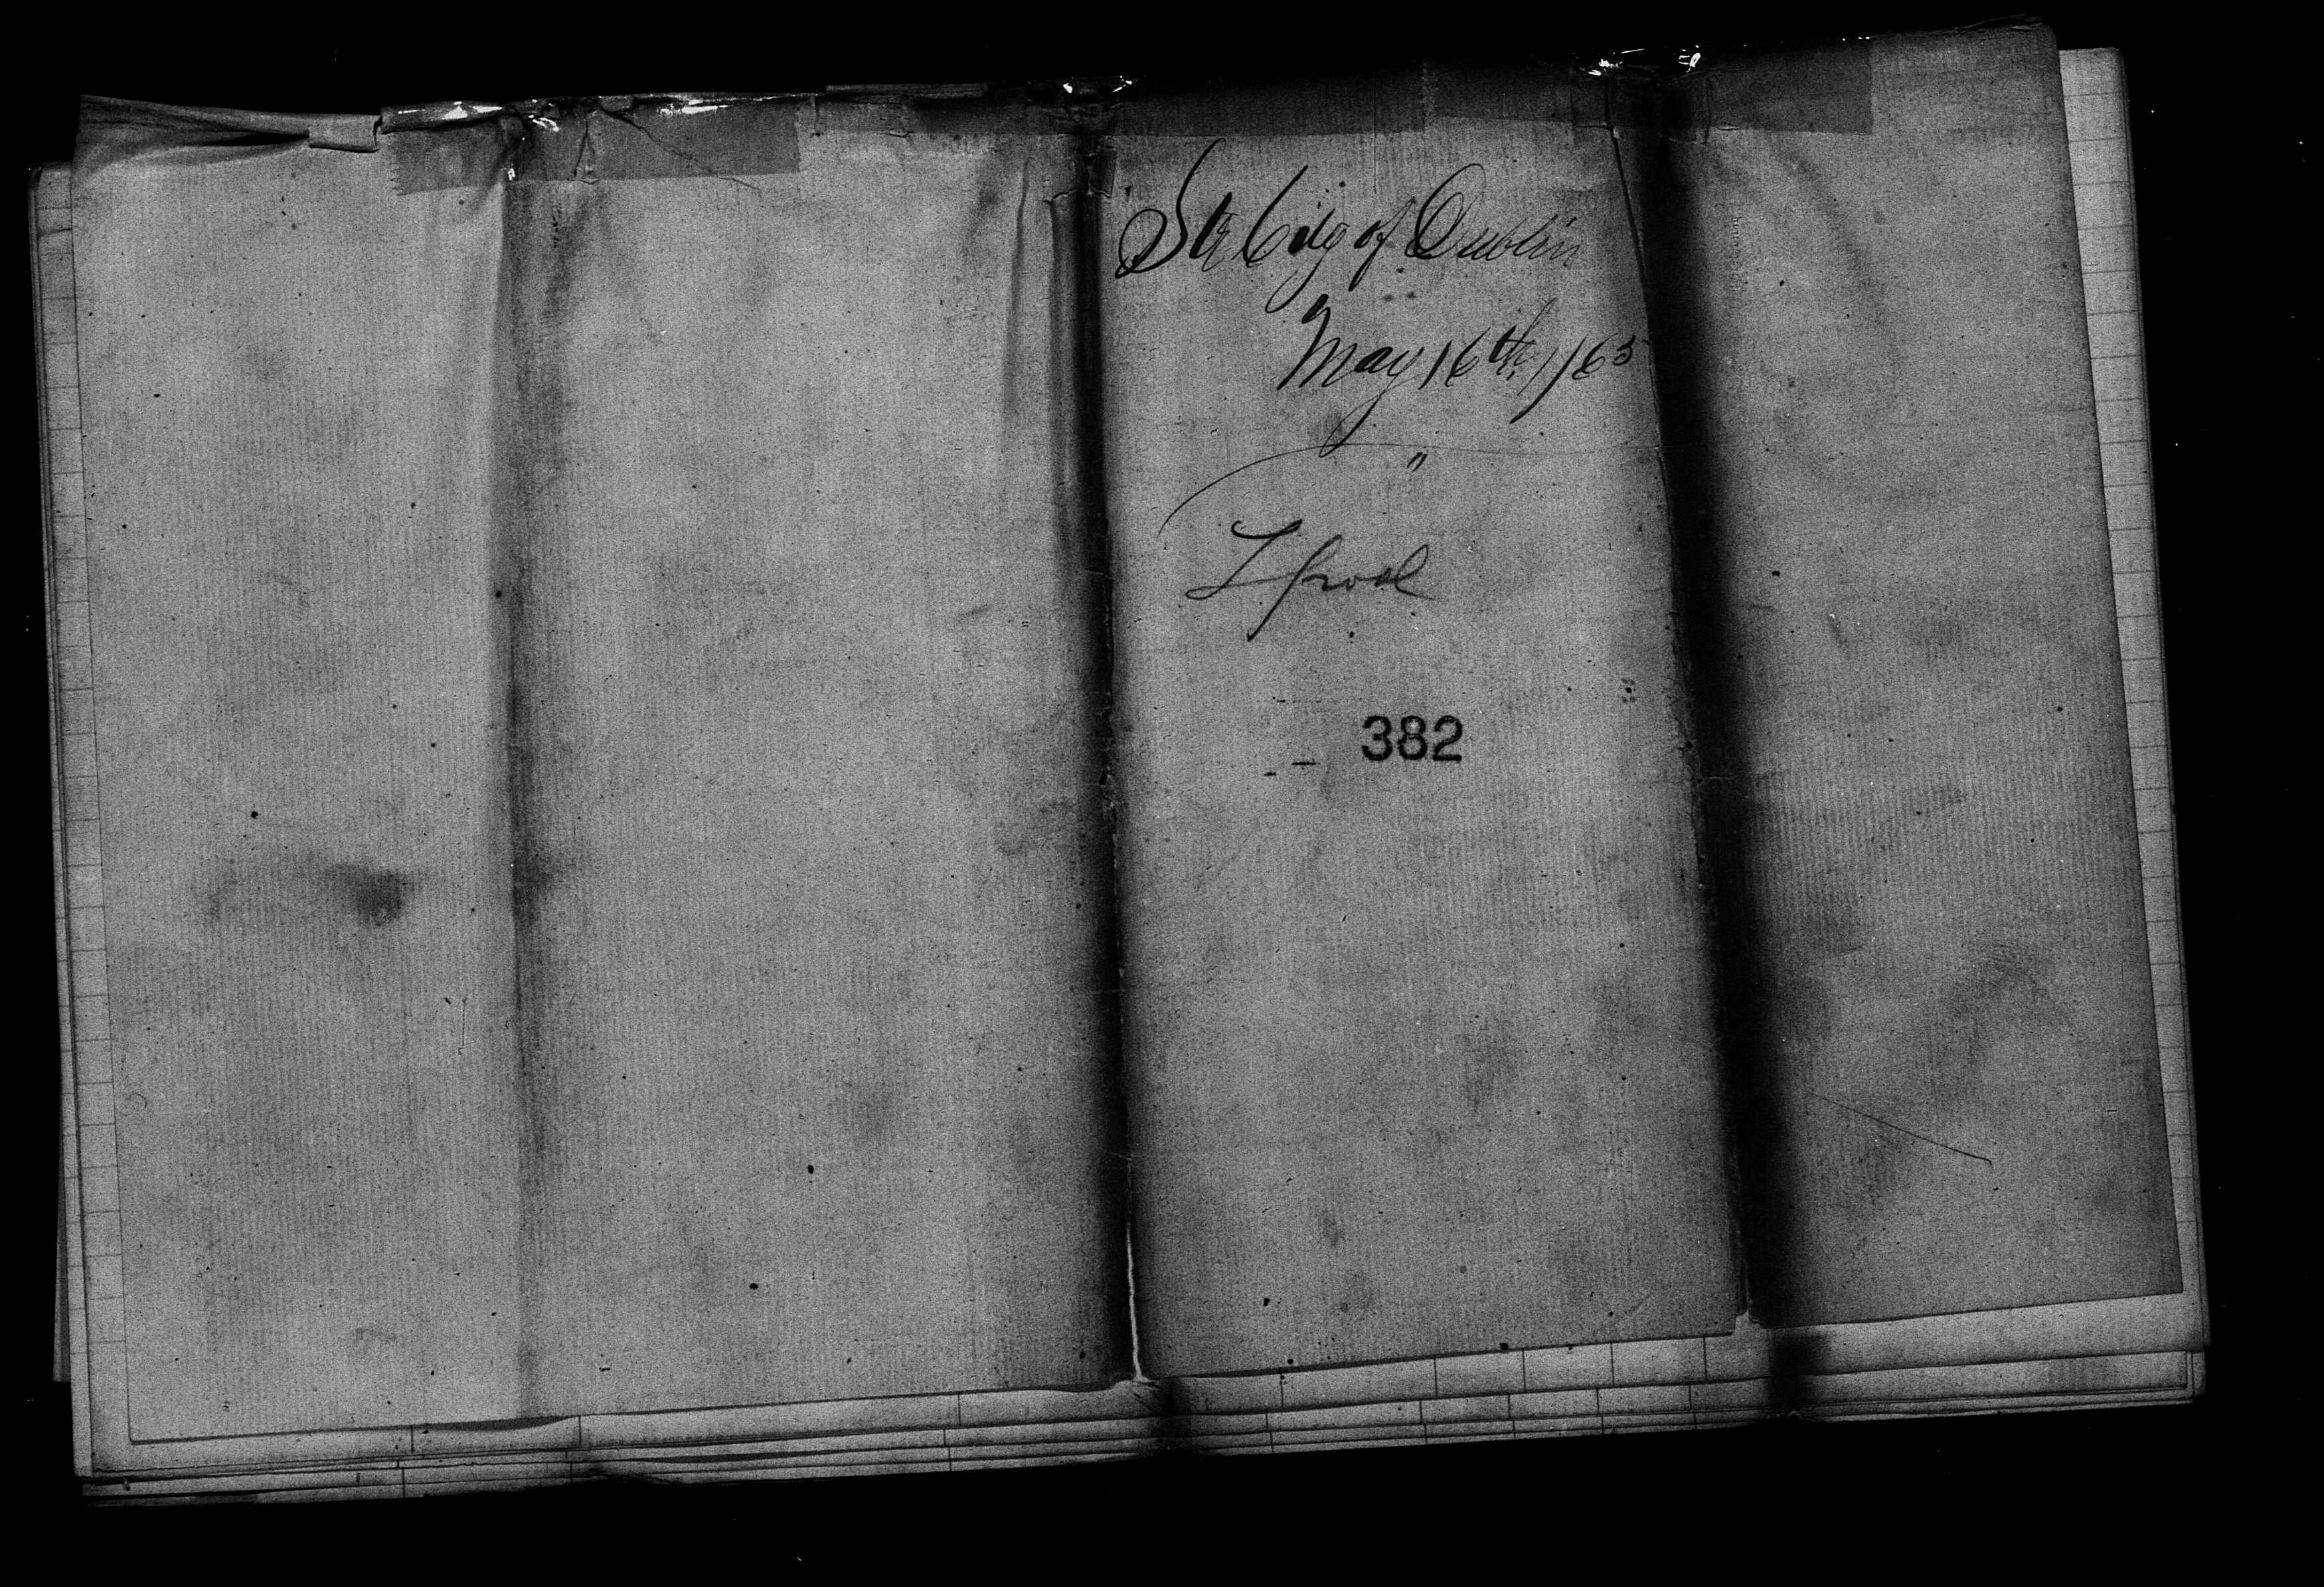 Str City of Dublin
May 16th, /65
"
L pool
382